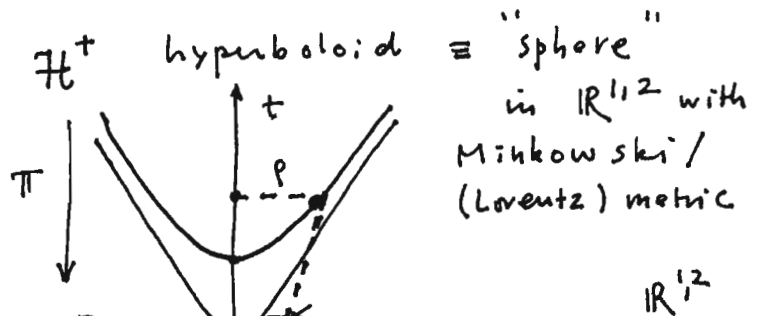 H⁺ hyperboloid ≡ "sphere"
in ℝ¹,² with
Minkowski/
(Lorentz) metric
t
ρ
π
ℝ¹,²